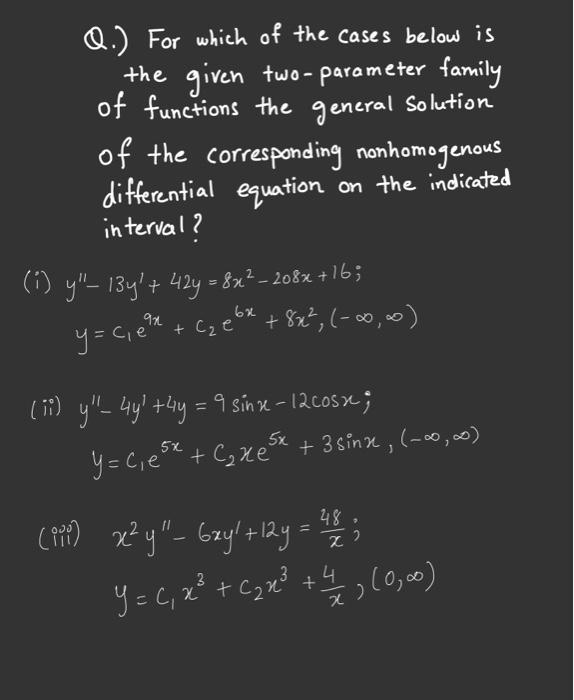 Q.) For which of the cases below is
the given two-parameter family
of functions the general solution
of the corresponding nonhomogenous
differential equation on the indicated
interval?
(i) y'' - 13y' + 42y = 8x² - 208x + 16;
y = c₁e⁹ˣ + c₂e⁶ˣ + 8x², (-∞,∞)
(ii) y'' - 4y' + 4y = 9 sinx - 12cosx;
y = c₁e⁵ˣ + c₂xe⁵ˣ + 3sinx, (-∞,∞)
(iii) x²y'' - 6xy' + 12y = 48/x;
y = c₁x³ + c₂x³ + 4/x, (0,∞)